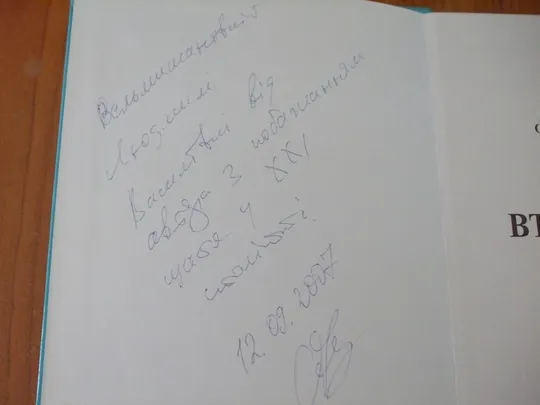 Вельмишановній
Людмилі
Василівні від
автора з побажанням
щастя у XXI
столітті!
12.09.2007
ВТ